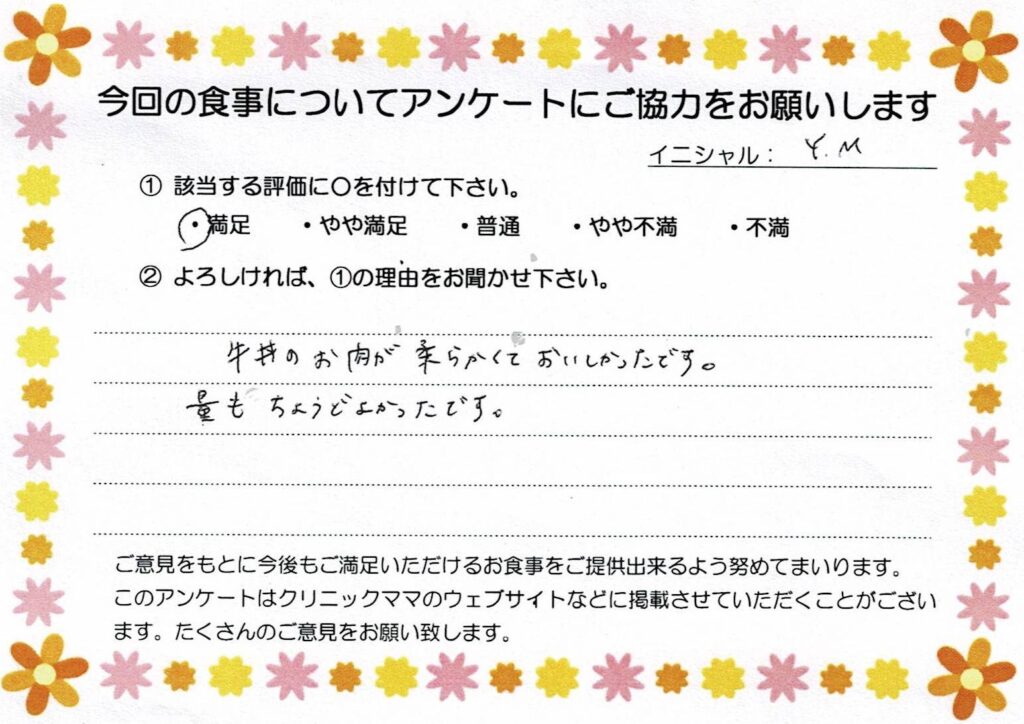 今回の食事についてアンケートにご協力をお願いします
イニシャル： Y.M
① 該当する評価に〇を付けて下さい。
・満足 ・やや満足 ・普通 ・やや不満 ・不満
② よろしければ、①の理由をお聞かせ下さい。
牛丼のお肉が柔らかくておいしかったです。
量もちょうどよかったです。
ご意見をもとに今後もご満足いただけるお食事をご提供出来るよう努めてまいります。
このアンケートはクリニックママのウェブサイトなどに掲載させていただくことがござい
ます。たくさんのご意見をお願い致します。